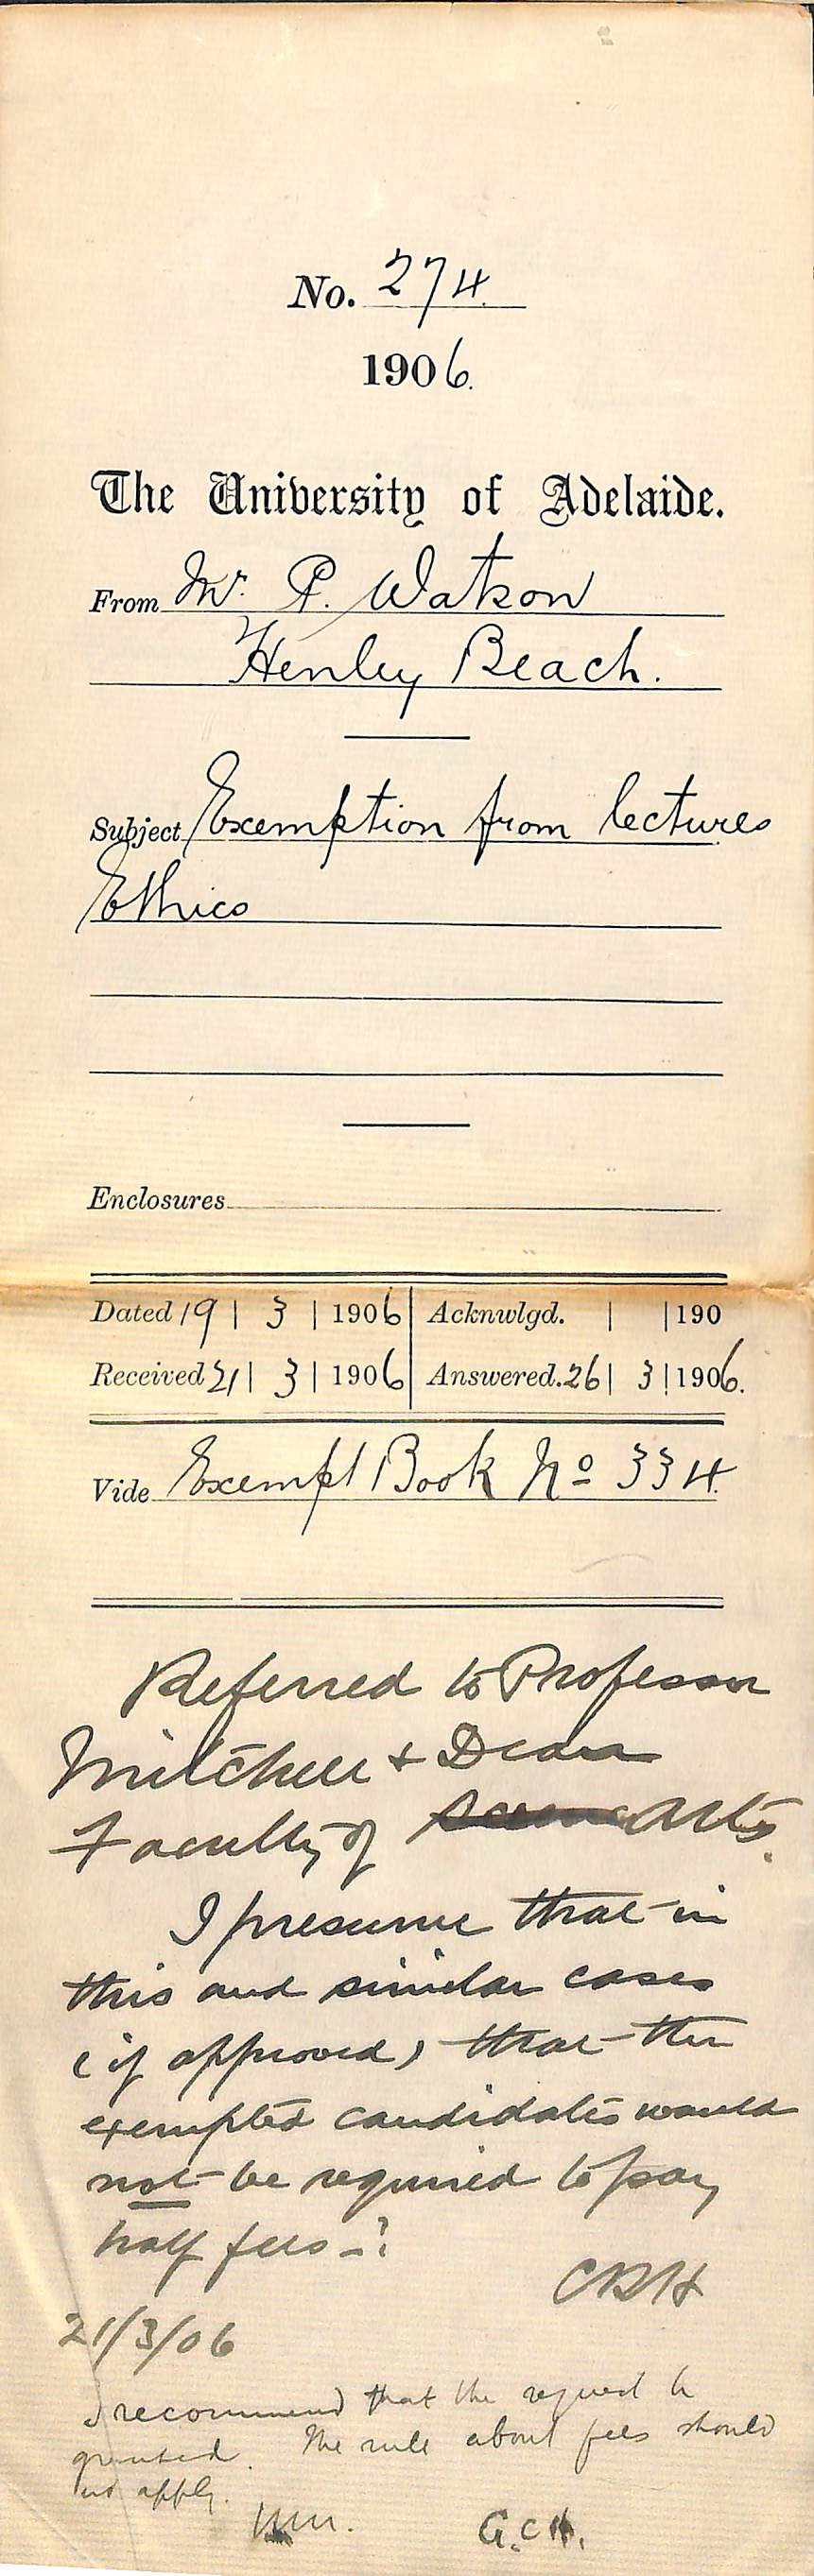 No. 274
1906.
The University of Adelaide.
From Mr. P. Watson
Henley Beach.
Subject Exemption from lectures
Ethics
Enclosures
Dated 19 | 3 | 1906 Acknwlgd. | | 190
Received 21 | 3 | 1906 Answered. 26 | 3 | 1906.
Vide Exempt Book No 334.
Referred to Professor
Mitchell & Dean
Faculty of Science Arts.
I presume that in
this and similar cases
(if approved) that the
exempted candidates would
not be required to pay
half fees -?
CRH
21/3/06
I recommend that the request be
granted. The rule about fees should
not apply.
WM. G.C.H.